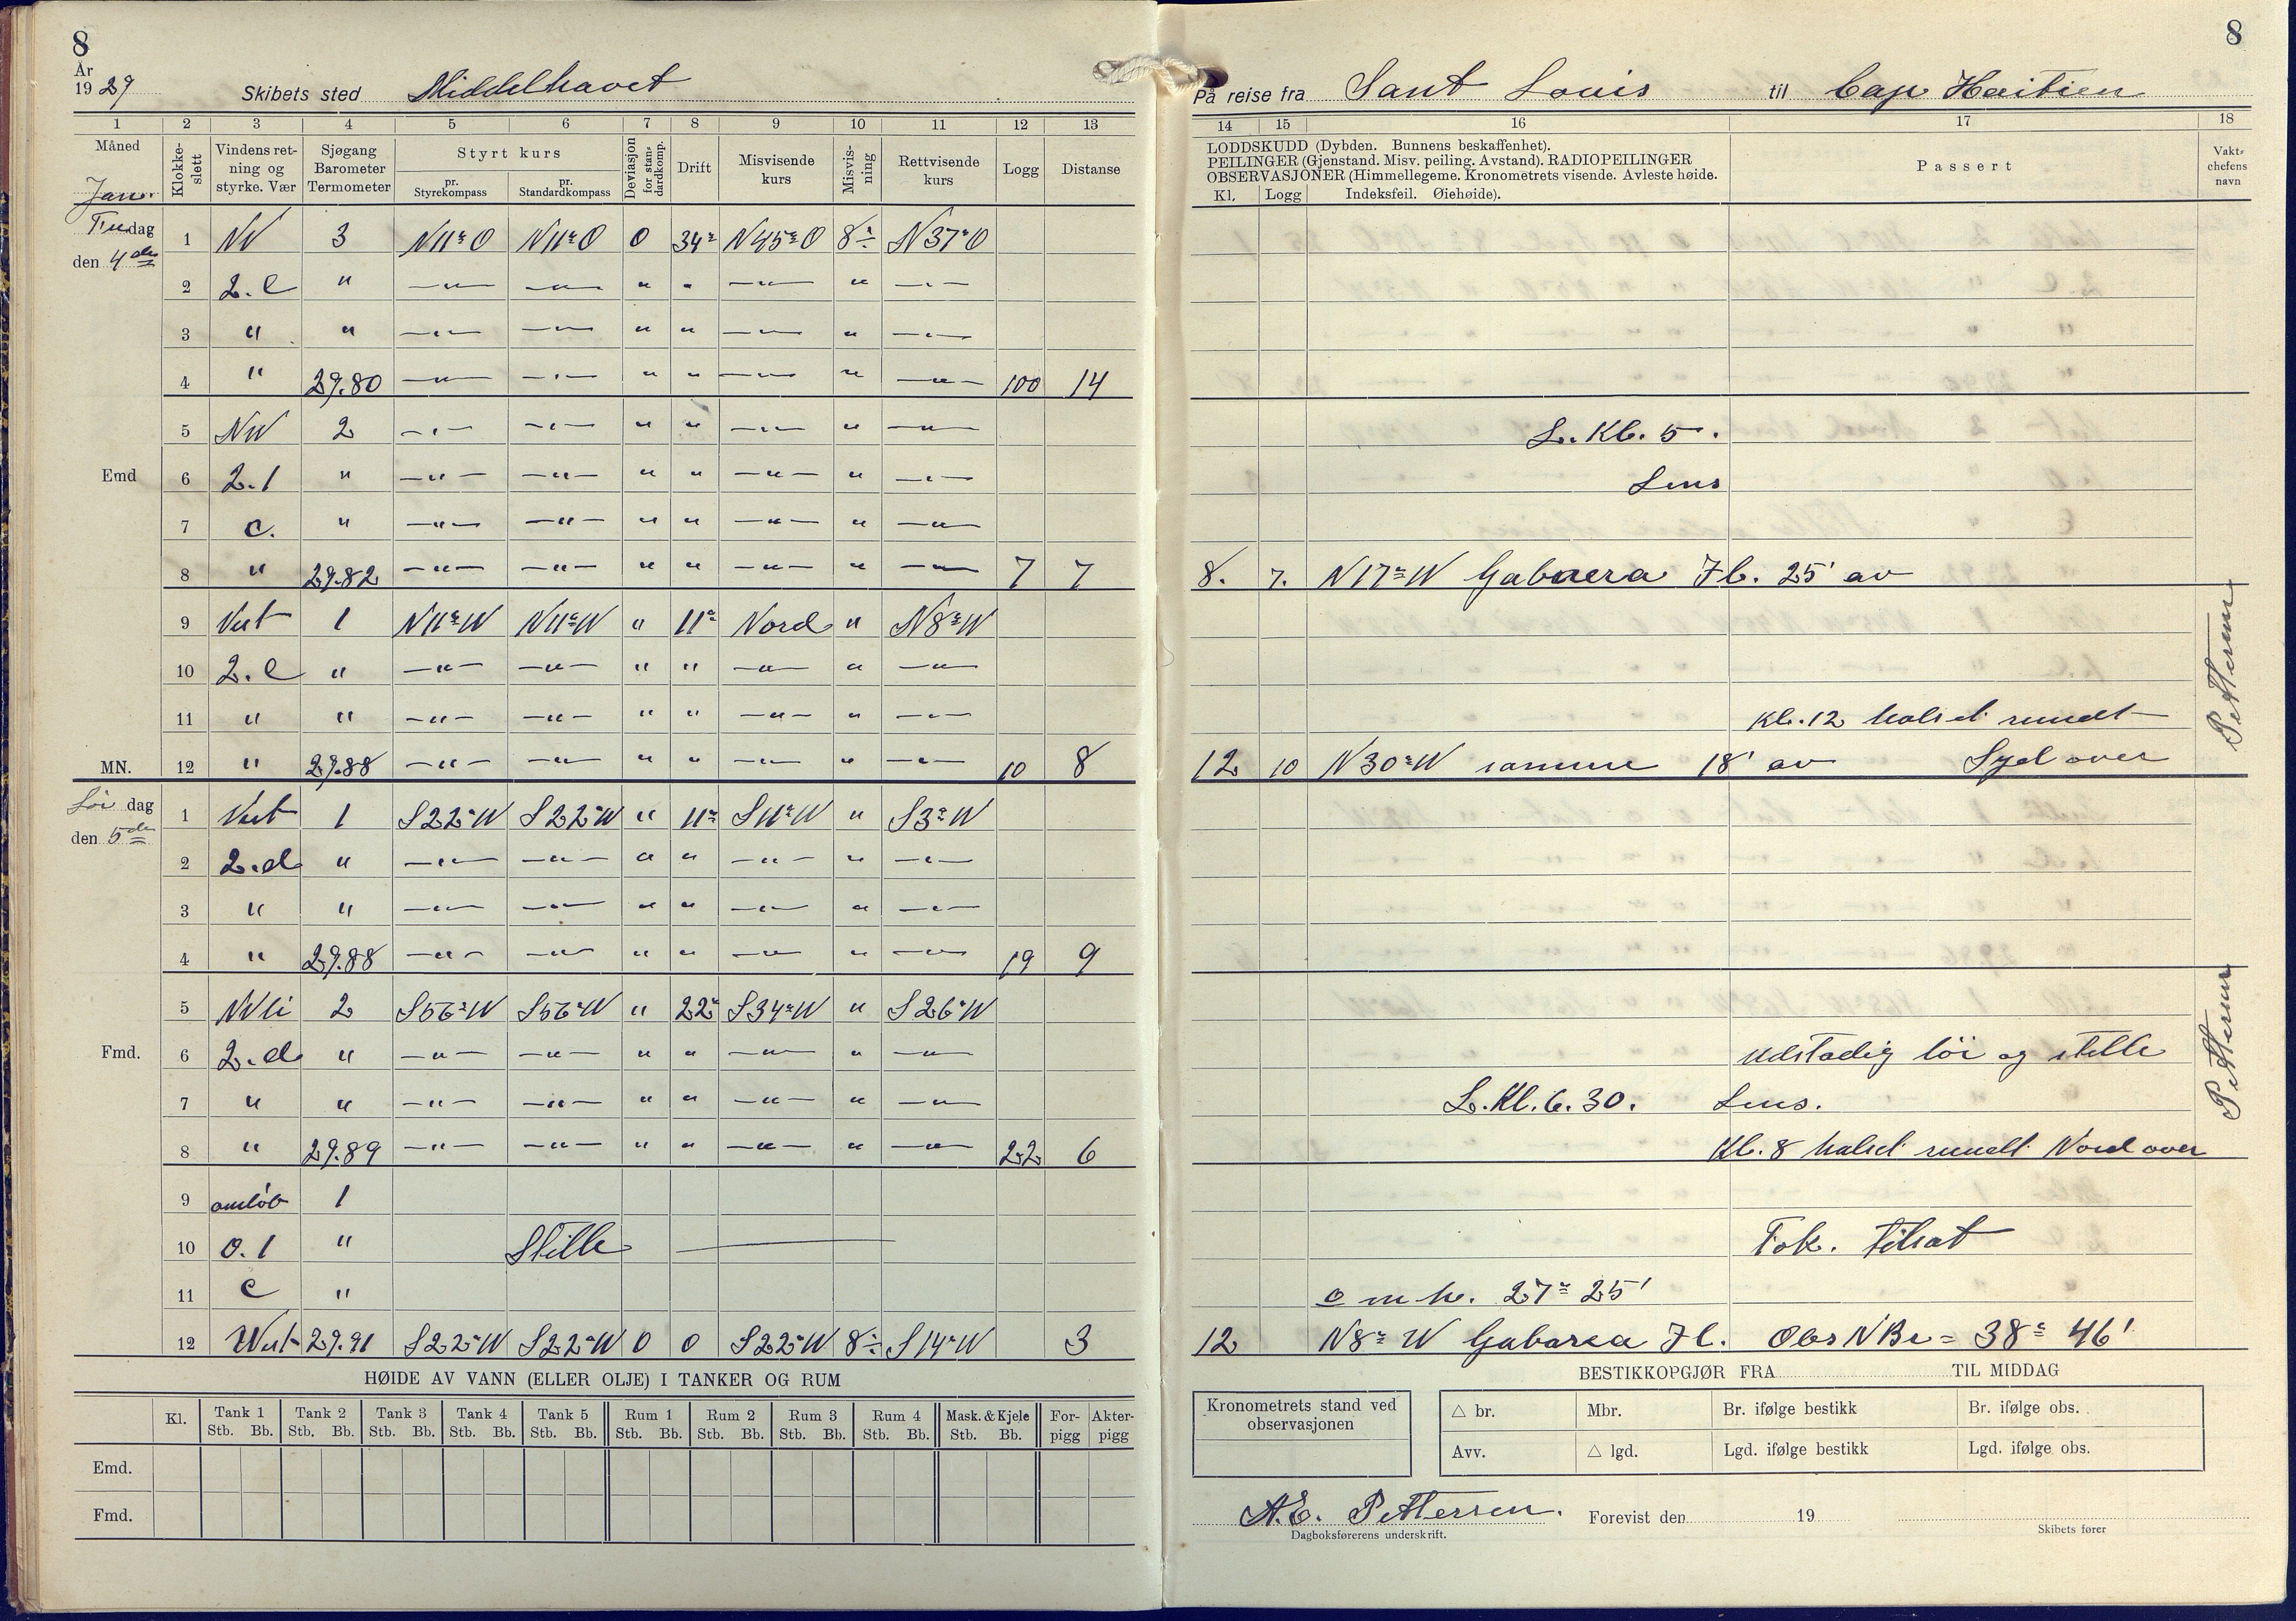 8
År
1929 Skibets sted Middelhavet
1 2 3 4 5 6 7 8 9 10 11 12 13
Måned Klokke-slett Vindens ret-ning og styrke. Vær Sjøgang Barometer Termometer Styrt kurs pr. Styrekompass pr. Standardkompass Deviasjon for stan-dardkomp. Drift Misvisende kurs Misvis-ning Rettvisende kurs Logg Distanse
Jan.
Fredag den 4de
1 NV 3 N11°O N11°O 0 34° N45°O 8÷ N37°O
2 2.c " —"— —"— " " —"— " —"—
3 " " —"— —"— " " —"— " —"—
4 " 29.80 —"— —"— " " —"— " —"— 100 14
5 NW 2 —"— —"— " " —"— " —"—
Emd 6 2.1 " —"— —"— " " —"— " —"—
7 c. " —"— —"— " " —"— " —"—
8 " 29.82 —"— —"— " " —"— " —"— 7 7
9 Vest 1 N11°W N11°W " 11° Nord " N8°W
10 2.c " —"— —"— " " —"— " —"—
11 " " —"— —"— " " —"— " —"—
MN. 12 " 29.88 —"— —"— " " —"— " —"— 10 8
Lør dag den 5de
1 Vest 1 S22°W S22°W " 11° S11°W " S3°W
2 2.d " —"— —"— " " —"— " —"—
3 " " —"— —"— " " —"— " —"—
4 " 29.88 —"— —"— " " —"— " —"— 19 9
5 NVli 2 S56°W S56°W " 22° S34°W " S26°W
Fmd. 6 2.d " —"— —"— " " —"— " —"—
7 " " —"— —"— " " —"— " —"—
8 " 29.89 —"— —"— " " —"— " —"— 22 6
9 omløb 1
10 0.1 " Stille ———
11 c "
12 West 29.91 S22°W S22°W 0 0 S22°W 8÷ S14°W 3
HØIDE AV VANN (ELLER OLJE) I TANKER OG RUM
Kl. Tank 1 Tank 2 Tank 3 Tank 4 Tank 5 Rum 1 Rum 2 Rum 3 Rum 4 Mask. & Kjele For-pigg Akter-pigg
Stb. Bb. Stb. Bb. Stb. Bb. Stb. Bb. Stb. Bb. Stb. Bb. Stb. Bb. Stb. Bb. Stb. Bb. Stb. Bb.
Emd.
Fmd.
8
På reise fra Sant Louis til Cap Haitien
14 15 16 17 18
LODDSKUDD (Dybden. Bunnens beskaffenhet).
PEILINGER (Gjenstand. Misv. peiling. Avstand). RADIOPEILINGER
OBSERVASJONER (Himmellegeme. Kronometrets visende. Avleste høide.
Kl. Logg Indeksfeil. Øiehøide).
Passert
Vakt-chefens navn
L. Kl. 5.
Lens
8. 7. N17°W Gabaera Fl. 25' av
Kl. 12 halset rundt
12 10 N30°W samme 18' av Syd over
Pettersen
udstadig løi og stille
L. Kl. 6.30. Lens.
Kl. 8 halset rundt Nord over
Pettersen
Tok. tilsat
o m h. 27° 25'
12 N8°W Gabarea Fl. Obs N Br = 38° 46'
BESTIKKOPGJØR FRA TIL MIDDAG
Kronometrets stand ved observasjonen
△ br. Mbr. Br. ifølge bestikk Br. ifølge obs.
Avv. △ lgd. Lgd. ifølge bestikk Lgd. ifølge obs.
A.E. Pettersen. Forevist den 19
Dagboksførerens underskrift. Skibets fører